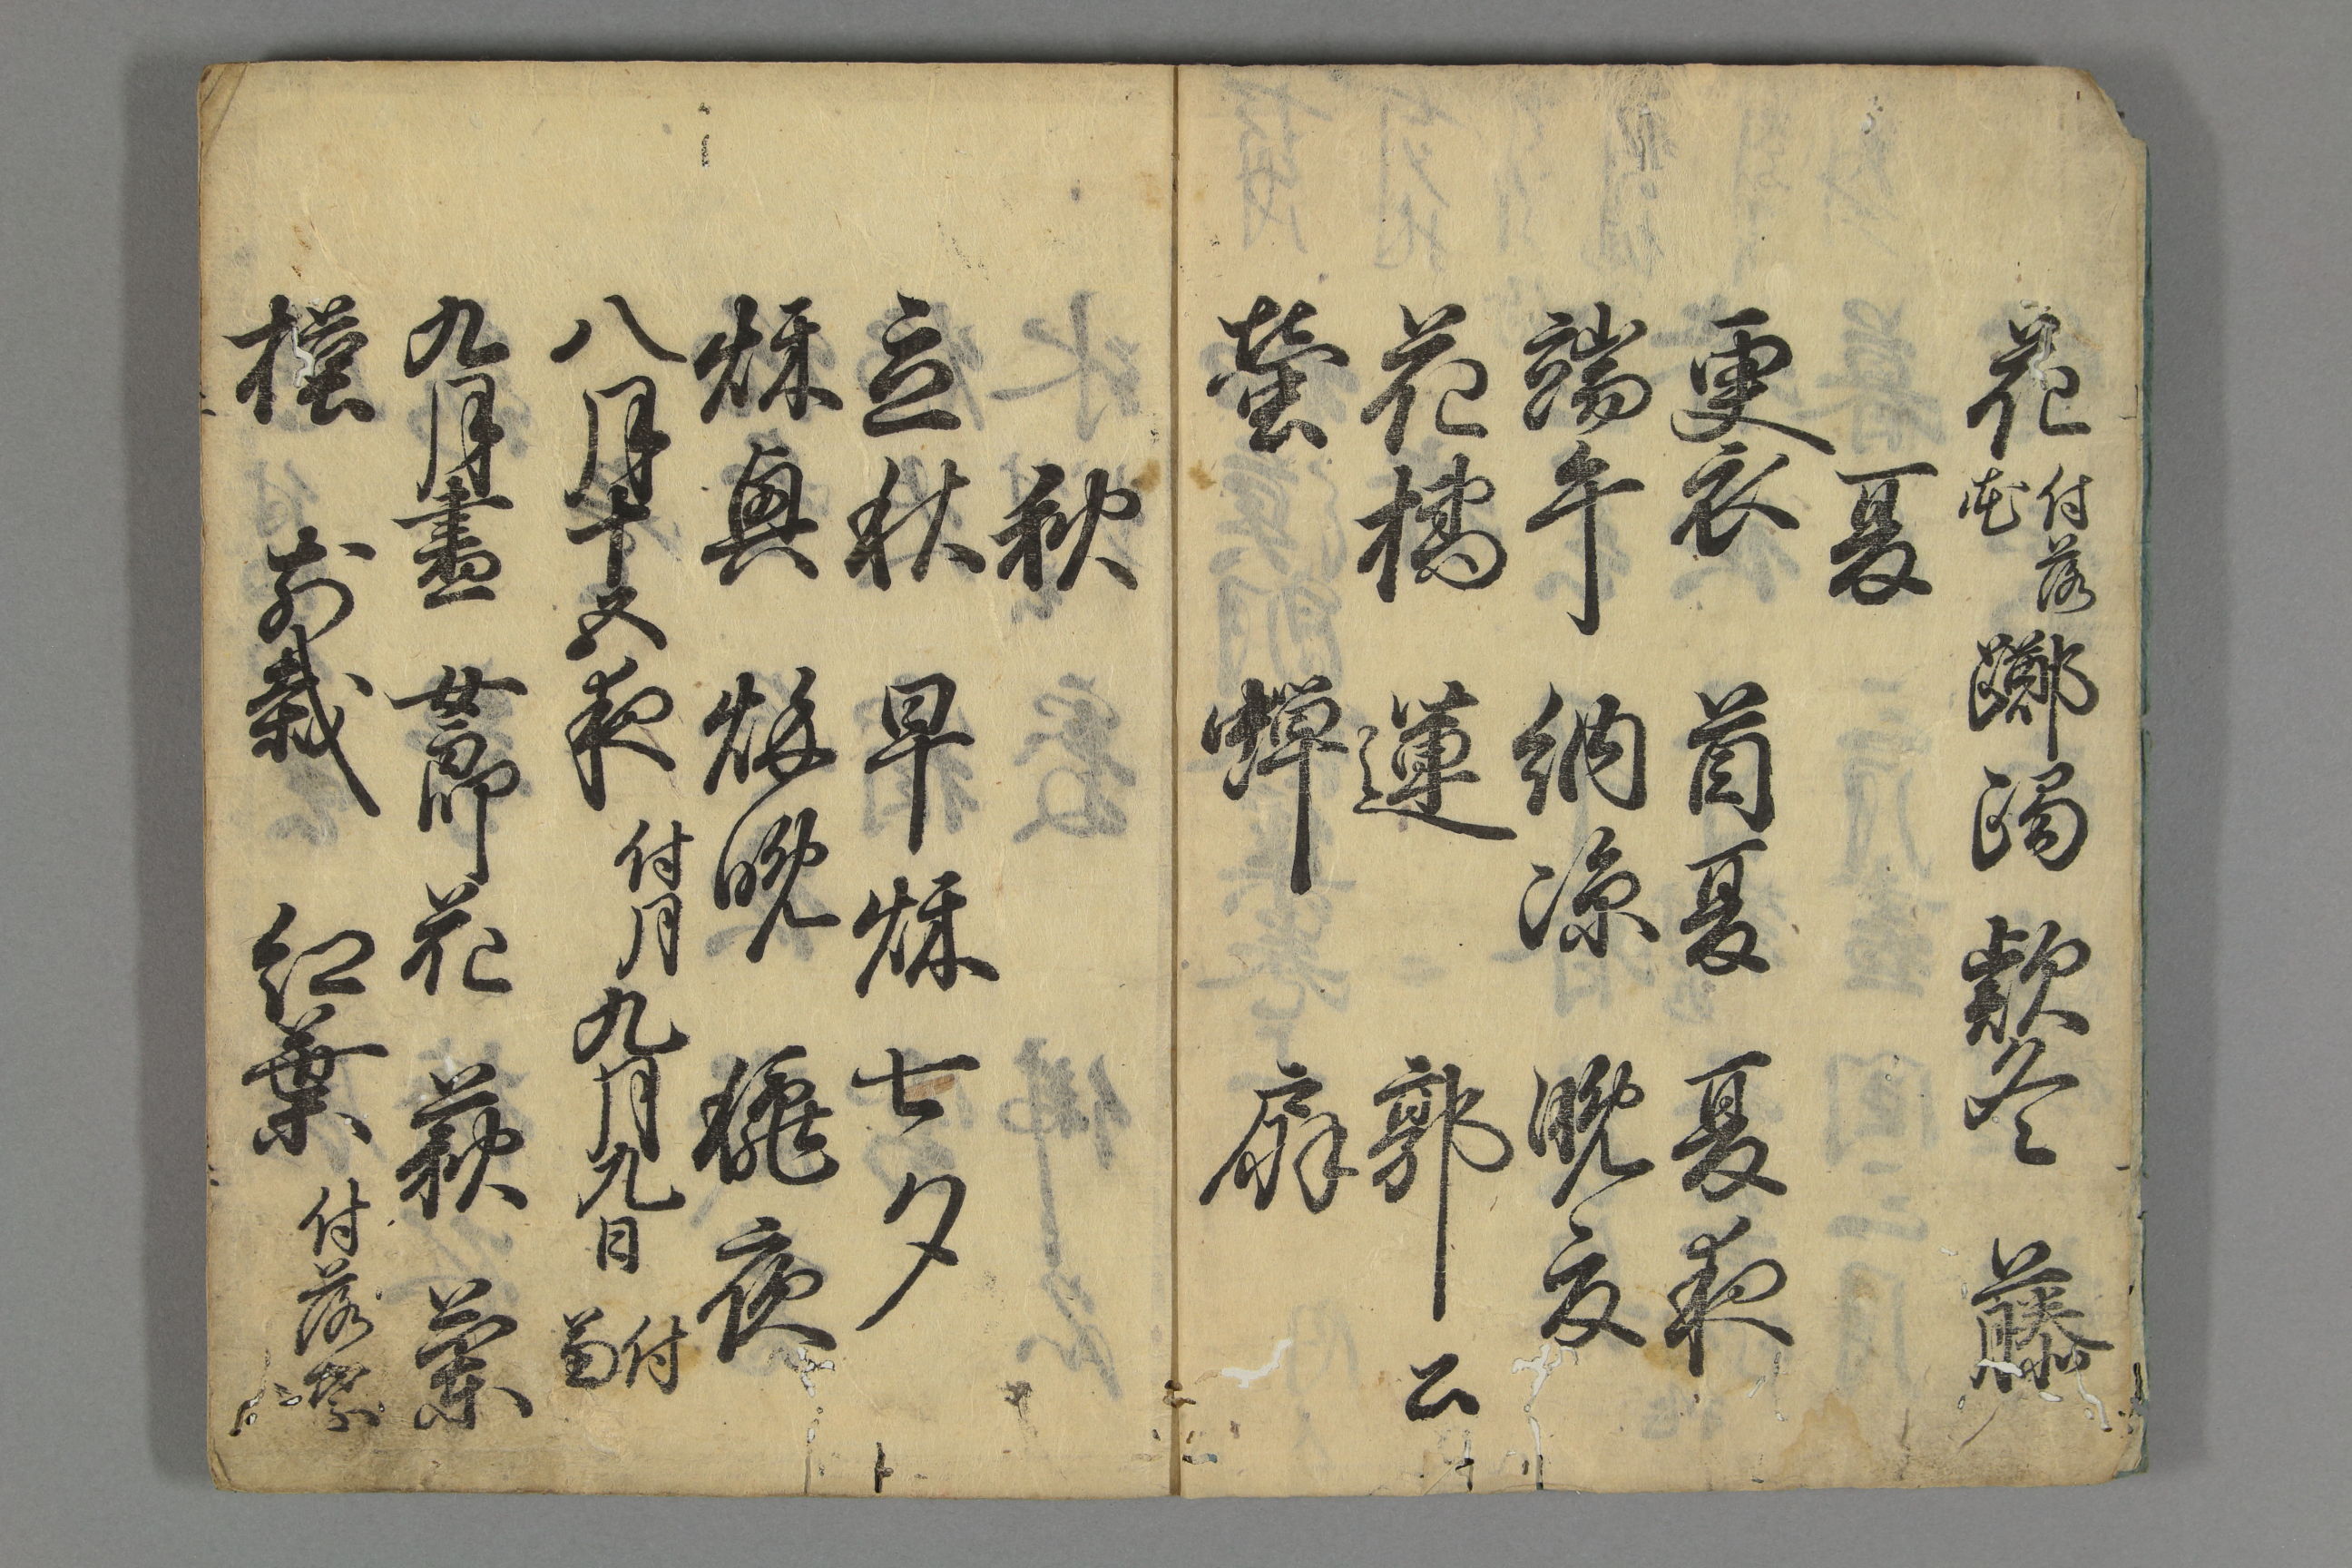 花 付落花 躑躅 款冬 藤
夏
更衣 首夏 夏夜
端午 納凉 晩夏
花橘 蓮 郭公
螢 蝉 扇
秋
立秋 早秌 七夕
秌興 秌晩 穐夜
八月十五夜 付月 九月九日 付菊
九月盡 女郎花 萩 蘭
槿 前栽 紅葉 付落葉